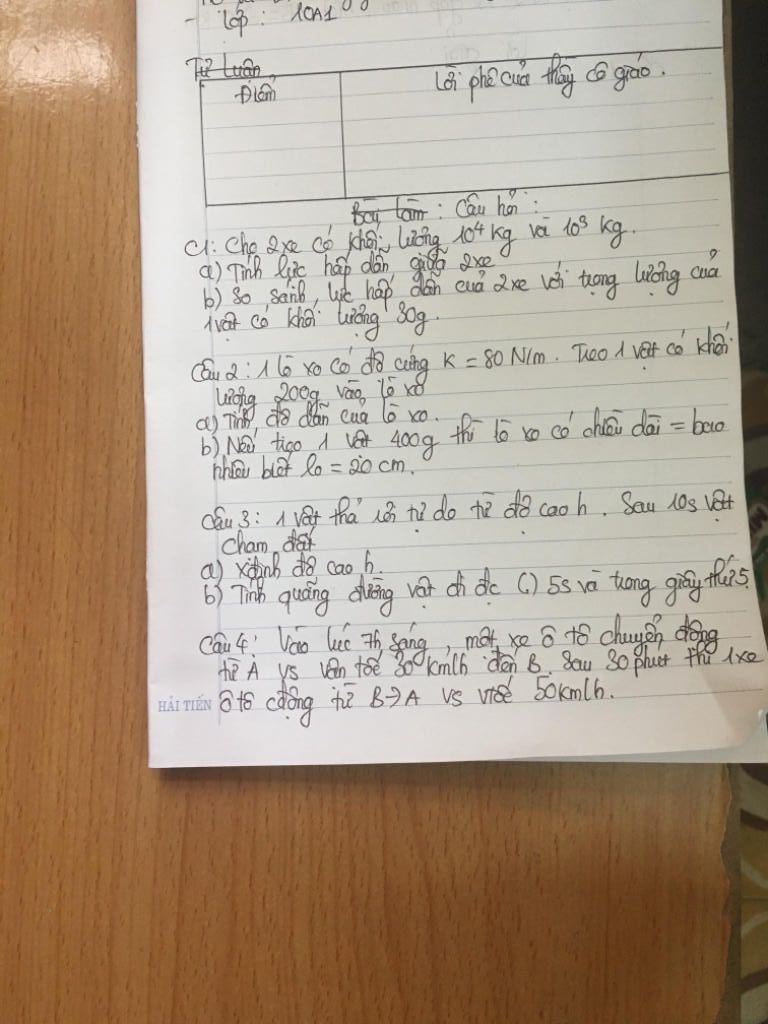 - Lớp : 10A1
Tự luận
Điểm
Lời phê của thầy cô giáo.
Bài làm : Câu hỏi :
C1: Cho 2 xe có khối lượng 10⁴ kg và 10³ kg.
a) Tính lực hấp dẫn giữa 2 xe
b) So sánh lực hấp dẫn của 2 xe với trọng lượng của
1 vật có khối lượng 30g.
Câu 2 : 1 lò xo có độ cứng K = 80 N/m. Treo 1 vật có khối
lượng 200g vào lò xo
a) Tính độ dãn của lò xo.
b) Nếu treo 1 vật 400g thì lò xo có chiều dài = bao
nhiêu biết lo = 20 cm.
Câu 3 : 1 vật thả rơi tự do từ độ cao h. Sau 10s vật
chạm đất
a) Xđịnh độ cao h.
b) Tính quãng đường vật đi đc (.) 5s và trong giây thứ 5.
Câu 4 : Vào lúc 7h sáng, một xe ô tô chuyển động
từ A vs vận tốc 30 km/h đến B. Sau 30 phút thì 1 xe
ô tô cđộng từ B→A vs vtốc 50km/h.
HẢI TIẾN